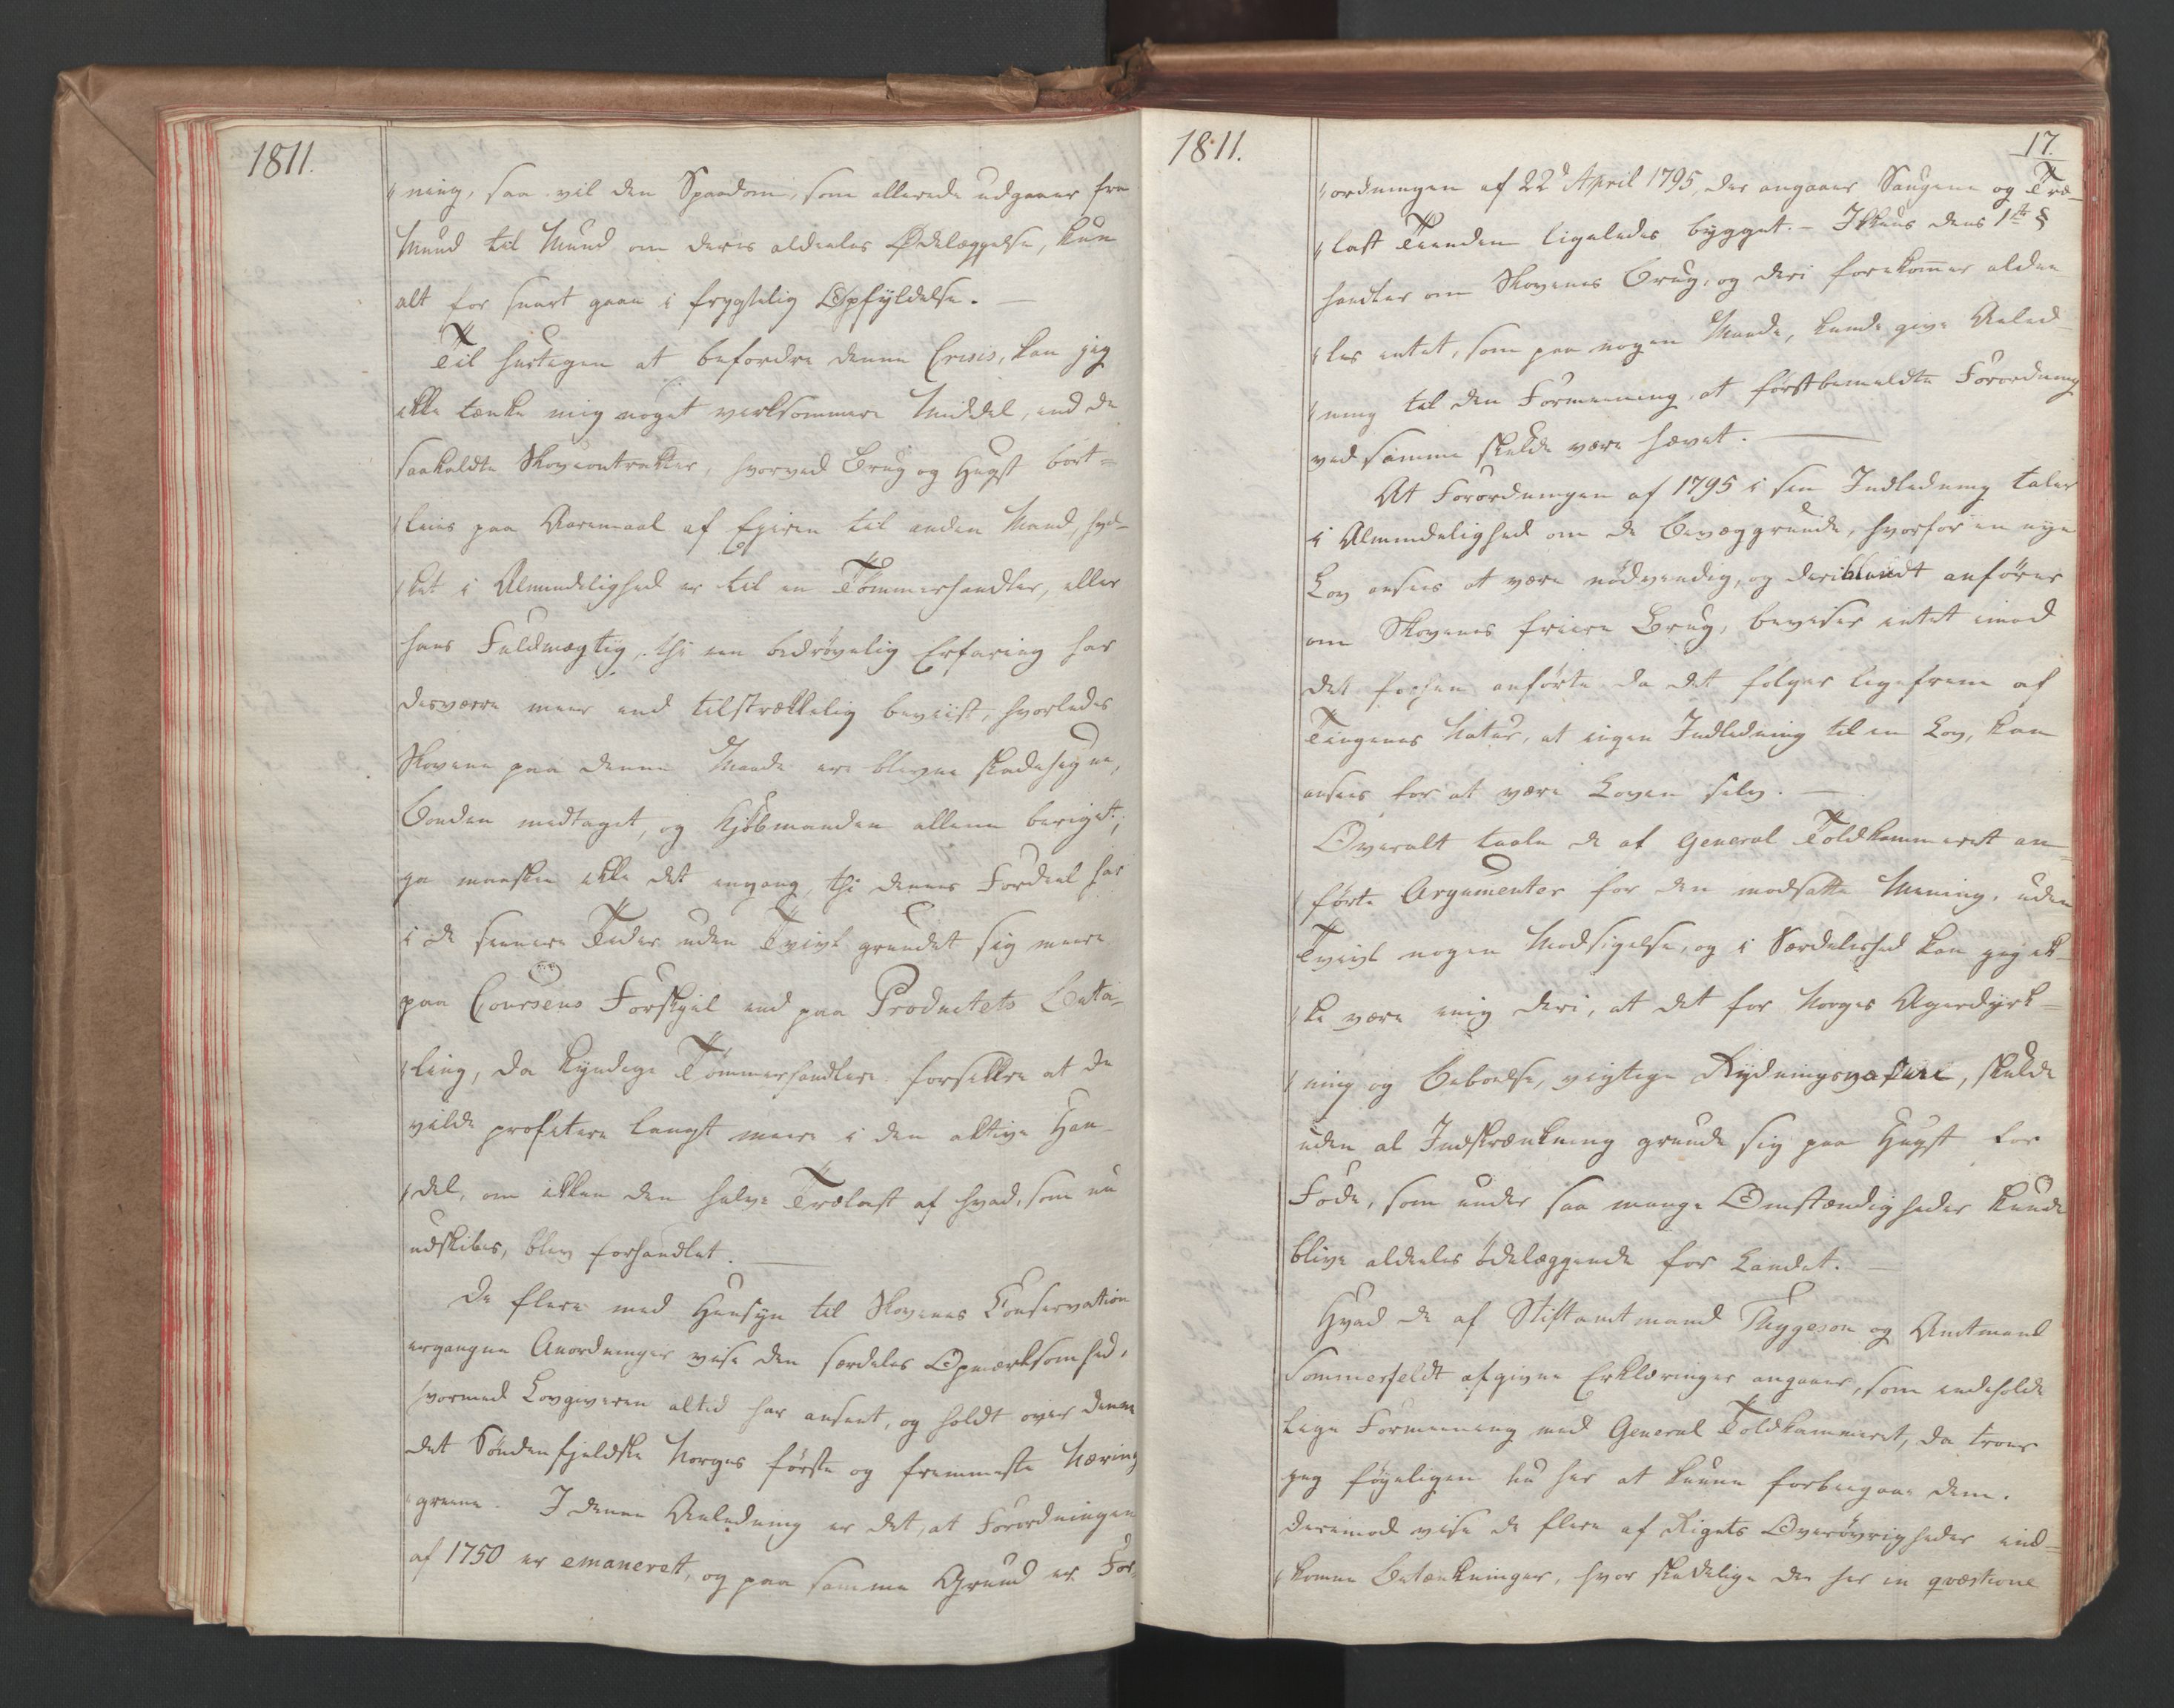 1811.
ning, saa vil den Spaadom, som allerede udgaaer fra
Mund til Mund om deres aldeeles Ødelæggelse, kun
alt for snart gaae i frygtelig Opfyldelse. —
Til hastigen at befordre denne Crisis, kan jeg
ikke tænke mig noget verksommere Middel, end de
saakaldte Skovcontrakter, hvorved Brug og Hugst bort=
leies paa Aaremaal af Eieren til anden Mand, hvil-
ket i Almindelighed er til en Tømmerhandler, eller
hans Fuldmægtig, thi een bedrøvelig Erfaring har
desværre meer end tilstrækkelig beviist, hvorledes
Skovene paa denne Maade ere blevne skadesløgne,
Bonden medtaget, og Kjøbmanden allene beriget,
ja maaskee ikke det engang, thi dennes Fordeel har
i de seenere Tider uden Tvivl grundet sig meere
paa Coursens Forskjel end paa Productets Beta-
ling, da kyndige Tømmerhandlere forsikkre at de
vilde profitere langt meere i den aktive Han-
del, om ikkun den halve Trælast af hvad, som nu
udskibes, blev forhandlet. —
De flere med Hensyn til Skovenes Conservation
ergangne Anordninger vise den særdeles Opmærksomhed,
hvormed Lovgiveren altid har anseet, og holdt over denne
det Søndenfjeldske Norges første og fremmeste Nærings
green. I denne Anledning er det, at Forordningen
af 1750 er emaneret, og paa samme Grund er For-
1811.
17.
ordningen af 22d April 1795, der angaaer Saugene og Træ-
last Tienden ligeledes bygget. – Ikkuns dens 1ste §
handler om Skovenes Brug, og deri forekommer aldee
les intet, som paa nogen Maade, kunde give Anled-
ning til den Formeening, at førstbemeldte Forordning
ved samme skulde være hævet. —
At Forordningen af 1795 i sin Indledning taler
i Almindelighed om de Bevæggrunde, hvorfor en nye
Lov ansees at være nødvendig, og deriblandt anfører
om Skovenes friere Brug, beviser intet imod
det forhen anførte da det følger ligefrem af
Tingenes Natur, at ingen Indledning til en Lov, kan
ansees for at være Loven selv. —
Overalt taale de af General Toldkammeret an=
førte Argumenter for den modsatte Mening, uden
Tvivl nogen Modsigelse, og i Særdeleshed kan jeg ik-
ke være enig deri, at det for Norges Agerdyrk=
ning og Beboelse, vigtige Rydningsvæsen, skulde
uden al Indskrænkning grunde sig paa Hugst for
Fode, som under saa mange Omstændigheder kunde
blive aldeeles ødelæggende for Landet. —
Hvad de af Stiftamtmand Thygeson og Amtmand
Sommerfeldt afgivne Erklæringer angaaer, som indeholde
lige Formeening med General Toldkammeret, da troer
jeg føyeligen nu her at kunne forbiegaae dem.
Derimod vise de flere af Rigets Overøvrigheder ind=
komne Betænkninger, hvor skadelige den her in qvæstione